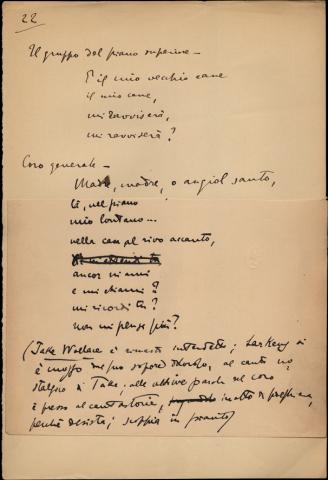 22
Il gruppo del piano superiore –
E il mio vecchio cane
il mio cane,
mi ravviserà,
mi ravviserà?
Coro generale –
Madre, madre, o angiol santo,
là, nel piano
mio lontano...
nella casa al rivo accanto,
ancor mi ami
e mi chiami?
mi ricordi tu?
non mi pensi più?
(Jake Wallace è smesso intendete; Larkens si
è mosso dal suo sopore
stalgico di Jake; alle ultime parole del coro
è presso al cantastorie, in atto di preghiera,
perché desista; scoppia in pianto)